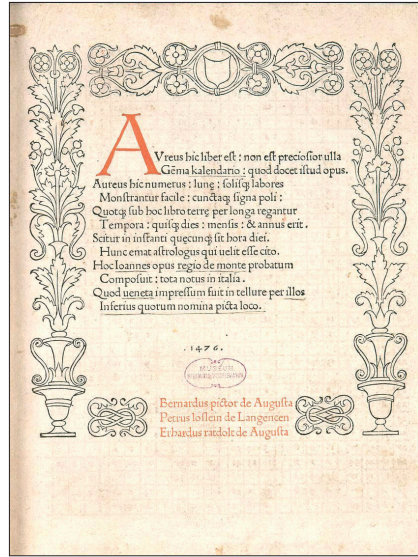 AVreus hic liber est : non est preciosior ulla
Gēma kalendario : quod docet istud opus.
Aureus hic numerus : lunę : solisq; labores
Monstrantur facile : cunctaq; signa poli :
Quotq; sub hoc libro terrę per longa regantur
Tempora : quisq; dies : mensis : & annus erit.
Scitur in instanti quecunq; sit hora diei.
Hunc emat astrologus qui uelit esse cito.
Hoc Ioannes opus regio de monte probatum
Composuit : tota notus in italia.
Quod ueneta impressum fuit in tellure per illos
Inferius quorum nomina picta loco.
.1476.
MUSEUM
Bernardus pictor de Augusta
Petrus löslein de Langencen
Erhardus ratdolt de Augusta